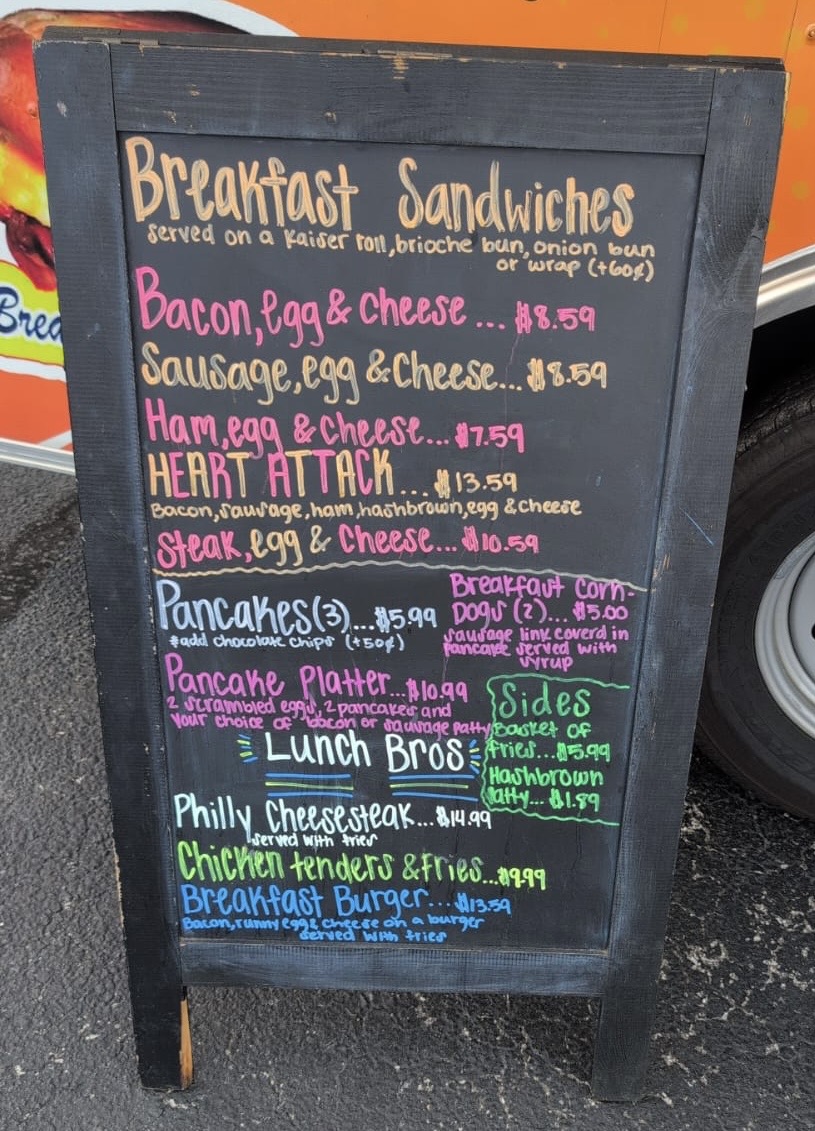 Breakfast Sandwiches
served on a Kaiser roll, brioche bun, onion bun
or wrap (+60¢)
Bacon, egg & cheese ... $8.59
Sausage, egg & Cheese... $8.59
Ham, egg & cheese... $7.59
HEART ATTACK ... $13.59
Bacon, sausage, ham, hashbrown, egg & cheese
Steak, egg & Cheese... $10.59
Pancakes (3) ... $5.99
*add chocolate chips (+50¢)
Breakfast Corn-
Dogs (2)... $5.00
sausage link coverd in
pancake served with
syrup
Pancake Platter... $10.99
2 scrambled eggs, 2 pancakes and
your choice of bacon or sausage patty
Sides
Basket of
fries... $5.99
Hashbrown
Patty... $1.89
Lunch Bros
Philly Cheesesteak... $14.99
served with fries
Chicken tenders & fries... $9.99
Breakfast Burger... $13.59
Bacon, runny egg & cheese on a burger
served with fries
Brea